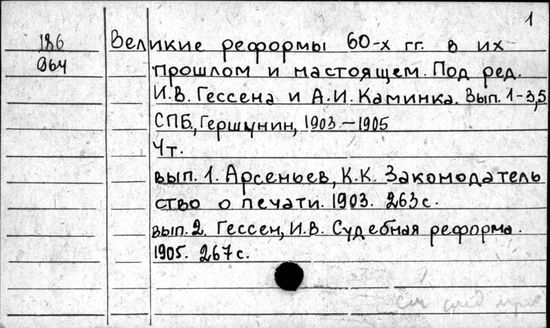 1
186
Великие реформы 60-х гг. в их
прошлом и настоящем. Под ред.
И.В. Гессена и А.И. Каминка. Вып. 1-3,5
СПБ, Гершунин, 1903.-1905
4т.
вып. 1. Арсеньев, К.К. Закомодатель
ство о печати. 1903. 263 с.
вып. 2. Гессен, И.В. Судебная реформа.
1905. 267 с.
см след